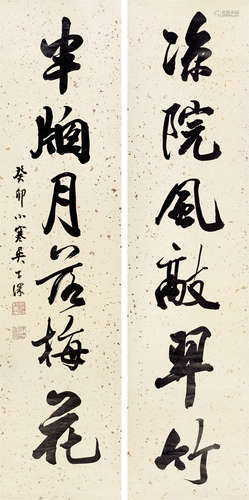 凉院风敲翠竹
半牕月落梅花
癸卯小寒吴子深